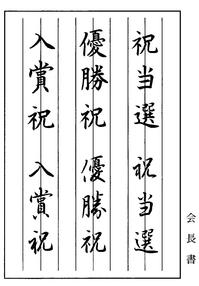 祝当選 祝当選
優勝祝 優勝祝
入賞祝 入賞祝
会長書